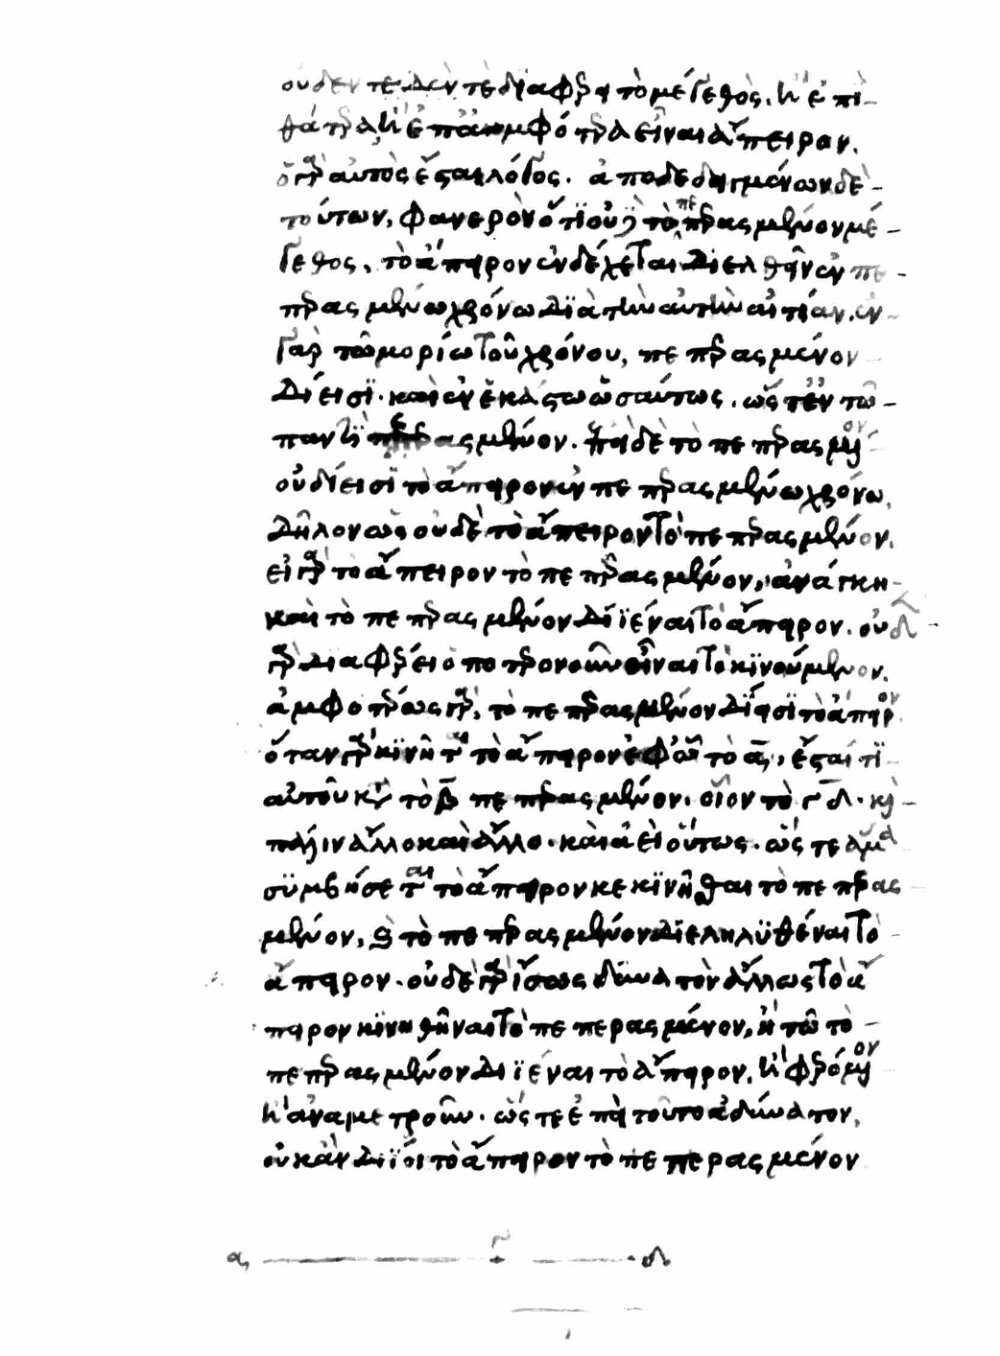 οὐδὲν τε δὲν τὲ διαφέρει τὸ μέγεθος. ἢ ἐπὶ
θάτερα ἢ ἐπ' ἀμφότερα εἶναι ἄπειρον.
ὁ γὰρ αὐτὸς ἔσται λόγος. ἀποδεδειγμένων δὲ
τούτων, φανερὸν ὅτι οὐδὲ τὸ πεπερασμένον μέ
γεθος, τὸ ἄπειρον ἐνδέχεται διελθεῖν ἐν πε
περασμένω χρόνω διὰ τὴν αὐτὴν αἰτίαν. ἐν
γὰρ τῶ μορίω τοῦ χρόνου, πεπερασμένον
δίεισι. καὶ ἐν ἑκάστω ὡσαύτως. ὥστ' ἐν τῶ
παντὶ πεπερασμένον. ἐπεὶ δὲ τὸ πεπερασμένον
οὐ δίεισι τὸ ἄπειρον ἐν πεπερασμένω χρόνω,
δῆλον ὡς οὐδὲ τὸ ἄπειρον τὸ πεπερασμένον.
εἰ γὰρ τὸ ἄπειρον τὸ πεπερασμένον, ἀνάγκη
καὶ τὸ πεπερασμένον διϊέναι τὸ ἄπειρον. οὐδὲν
γὰρ διαφέρει ὁποτερονοῦν εἶναι τὸ κινούμενον.
ἀμφοτέρως γὰρ, τὸ πεπερασμένον δίεισι τὸ ἄπειρον
ὅταν γὰρ κινῆται τὸ ἄπειρον ἐφ' ὧ τὸ α, ἔσται τι
αὐτοῦ κατὰ τὸ β πεπερασμένον. οἷον τὸ γδ. καὶ
πάλιν ἄλλο καὶ ἄλλο. καὶ ἀεὶ οὕτως. ὥστε ἅμα
συμβήσεται τὸ ἄπειρον κεκινῆσθαι τὸ πεπερας
μένον, καὶ τὸ πεπερασμένον διεληλυθέναι τὸ
ἄπειρον. οὐδὲ γὰρ ἴσως δυνατὸν ἄλλως τὸ ἄ
πειρον κινηθῆναι τὸ πεπερασμένον, ἢ τῶ τὸ
πεπερασμένον διϊέναι τὸ ἄπειρον. ἢ φερόμενον
ἢ ἀναμετροῦν. ὥστε ἐπεὶ τοῦτο ἀδύνατον,
οὐκ ἂν διΐοι τὸ ἄπειρον τὸ πεπερασμένον
α γ δ